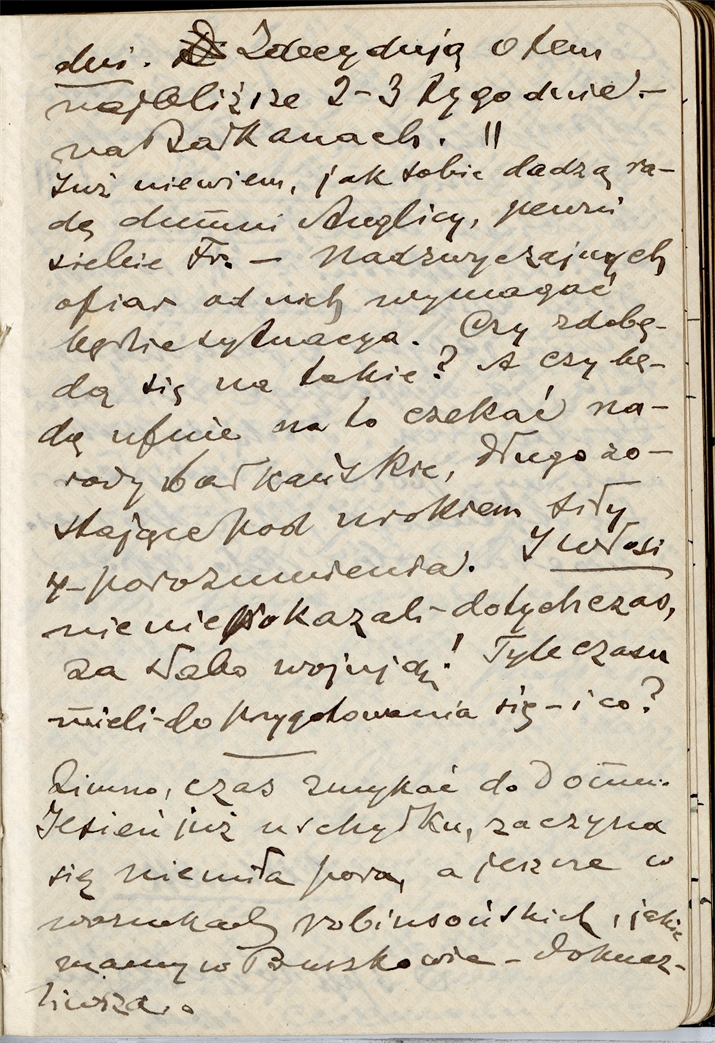 dni. Zdecydują o tem
najbliższe 2-3 tygodnie -
na Bałkanach. ||
Już niewiem, jak sobie dadzą ra-
dę dumni Anglicy, pewni
siebie Fr. - Nadzwyczajnych
ofiar od nich wymagać
będzie sytuacya. Czy zdobę-
dą się na takie? A czy bę-
dą ufnie na to czekać na-
rody bałkańskie, długo zo-
stające pod urokiem siły
4-porozumienia. I Włosi
nic nie pokazali - dotychczas,
za słabo wojują! Tyle czasu
mieli do przygotowania się - i co?
Zimno, czas zmykać do Domu.
Jesień już u schyłku, zaczyna
się niemiła pora, a jeszcze w
warunkach robinsońskich, jakie
mamy w - dokucz-
liwsza.